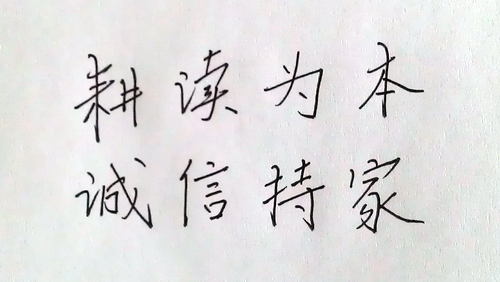 耕读为本
诚信持家